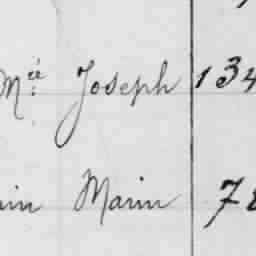 Mée Joseph 134
in Marin 78